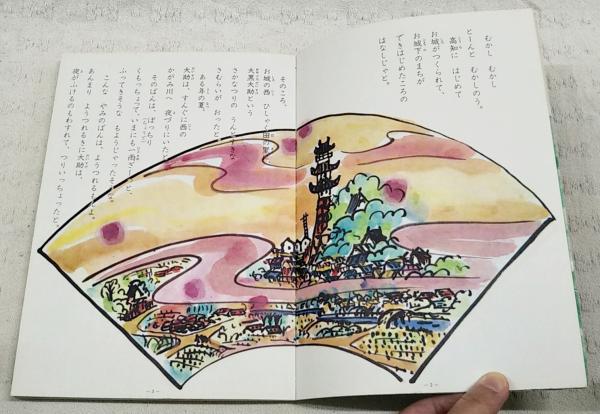 むかし むかし
とーんと むかしのう。
高知に はじめて
お城がつくられて、
お城下のまちが
できはじめたころの
はなしじゃと。
そのころ、
お城の西 ひしゃく田の里に
大黒大助という
さかなつりの うんと すきな
さむらいが おったと。
ある年の夏、
大助は、すんぐに西の
かがみ川へ 夜づりにいたと。
そのばんは、ぼっちり
くもっちょって、いまにも一雨ざーっと、
ふってきそうな もようじゃったそうな。
こんな やみのばんは、ようつれるもんよ。
あんまり ようつれるきに大助は、
夜がふけるのもわすれて、つりいっちょったと。
－3－
－2－